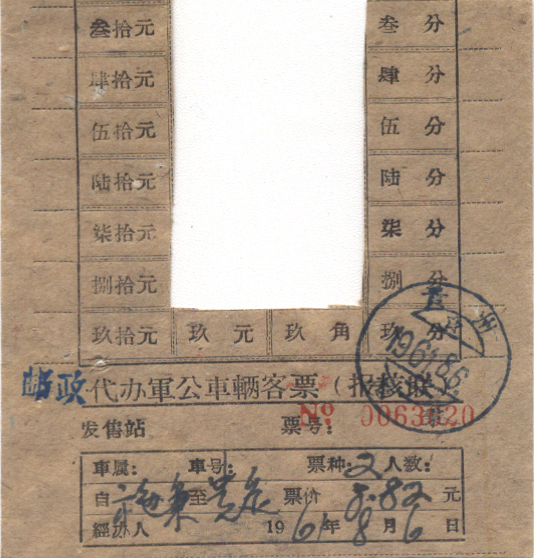 叁拾元 叁分
肆拾元 肆分
伍拾元 伍分
陆拾元 陆分
柒拾元 柒分
捌拾元 捌分
玖拾元 玖元 玖角 玖分
邮政代办軍公車辆客票(报核联)
发售站 票号: No 0063020
車属: 車号: 票种: 人数:
自 至 票价 8.82 元
經办人 1961年8月6日
1961.8.6